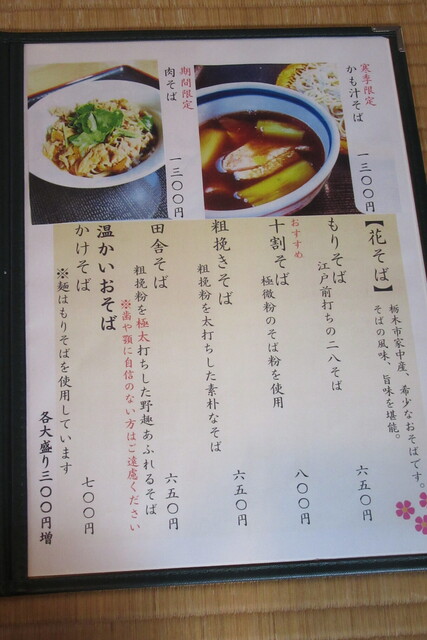 寒季限定
かも汁そば
一三〇〇円
期間限定
肉そば
一三〇〇円
【花そば】
栃木市家中産、希少なおそばです。
そばの風味、旨味を堪能。
もりそば
江戸前打ちの二八そば
六五〇円
おすすめ
十割そば
極微粉のそば粉を使用
八〇〇円
粗挽きそば
粗挽粉を太打ちした素朴なそば
六五〇円
田舎そば
粗挽粉を極太打ちした野趣あふれるそば
※歯や顎に自信のない方はご遠慮ください
六五〇円
温かいおそば
かけそば
※麺はもりそばを使用しています
七〇〇円
各大盛り三〇〇円増